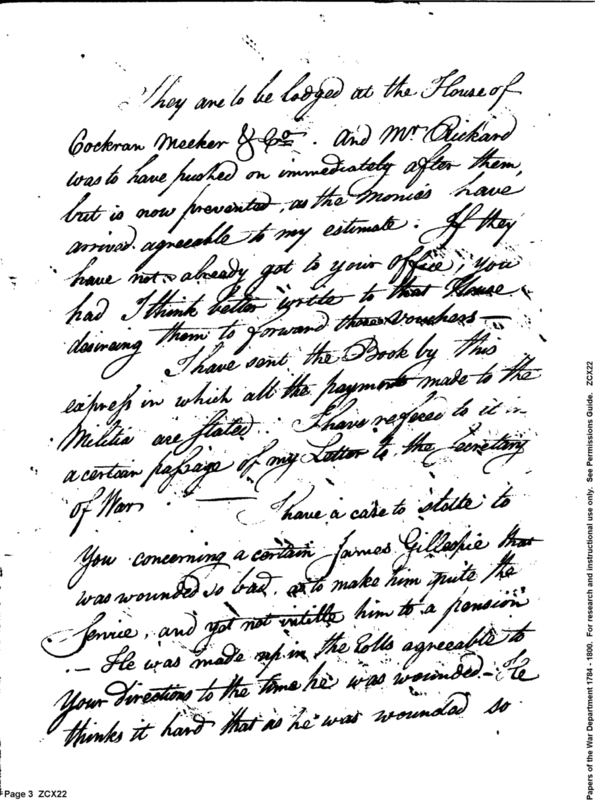 They are to be lodged at the House of
Cockran Meeker & Co. And Mr. Rickard
was to have pushed on immediately after them,
but is now prevented, as the Monies have
arrived agreeable to my estimate. If they
have not already got to your office, you
had I think better write to that House
desireing them to forward those Vouchers —
I have sent the Book by this
express in which all the payments made to the
Militia are stated. I have refered to it in
a certain passage of my Letter to the Secretary
of War. — I have a case to state to
You concerning a certain James Gillespie that
was wounded so bad, as to make him quite the
Service, and yet not intitle him to a pension
— He was made up in the Rolls agreeable to
Your directions to the time he was wounded — He
thinks it hard that as he was wounded so
Page 3 ZCX22
Papers of the War Department 1784 - 1800. For research and instructional use only. See Permissions Guide. ZCX22